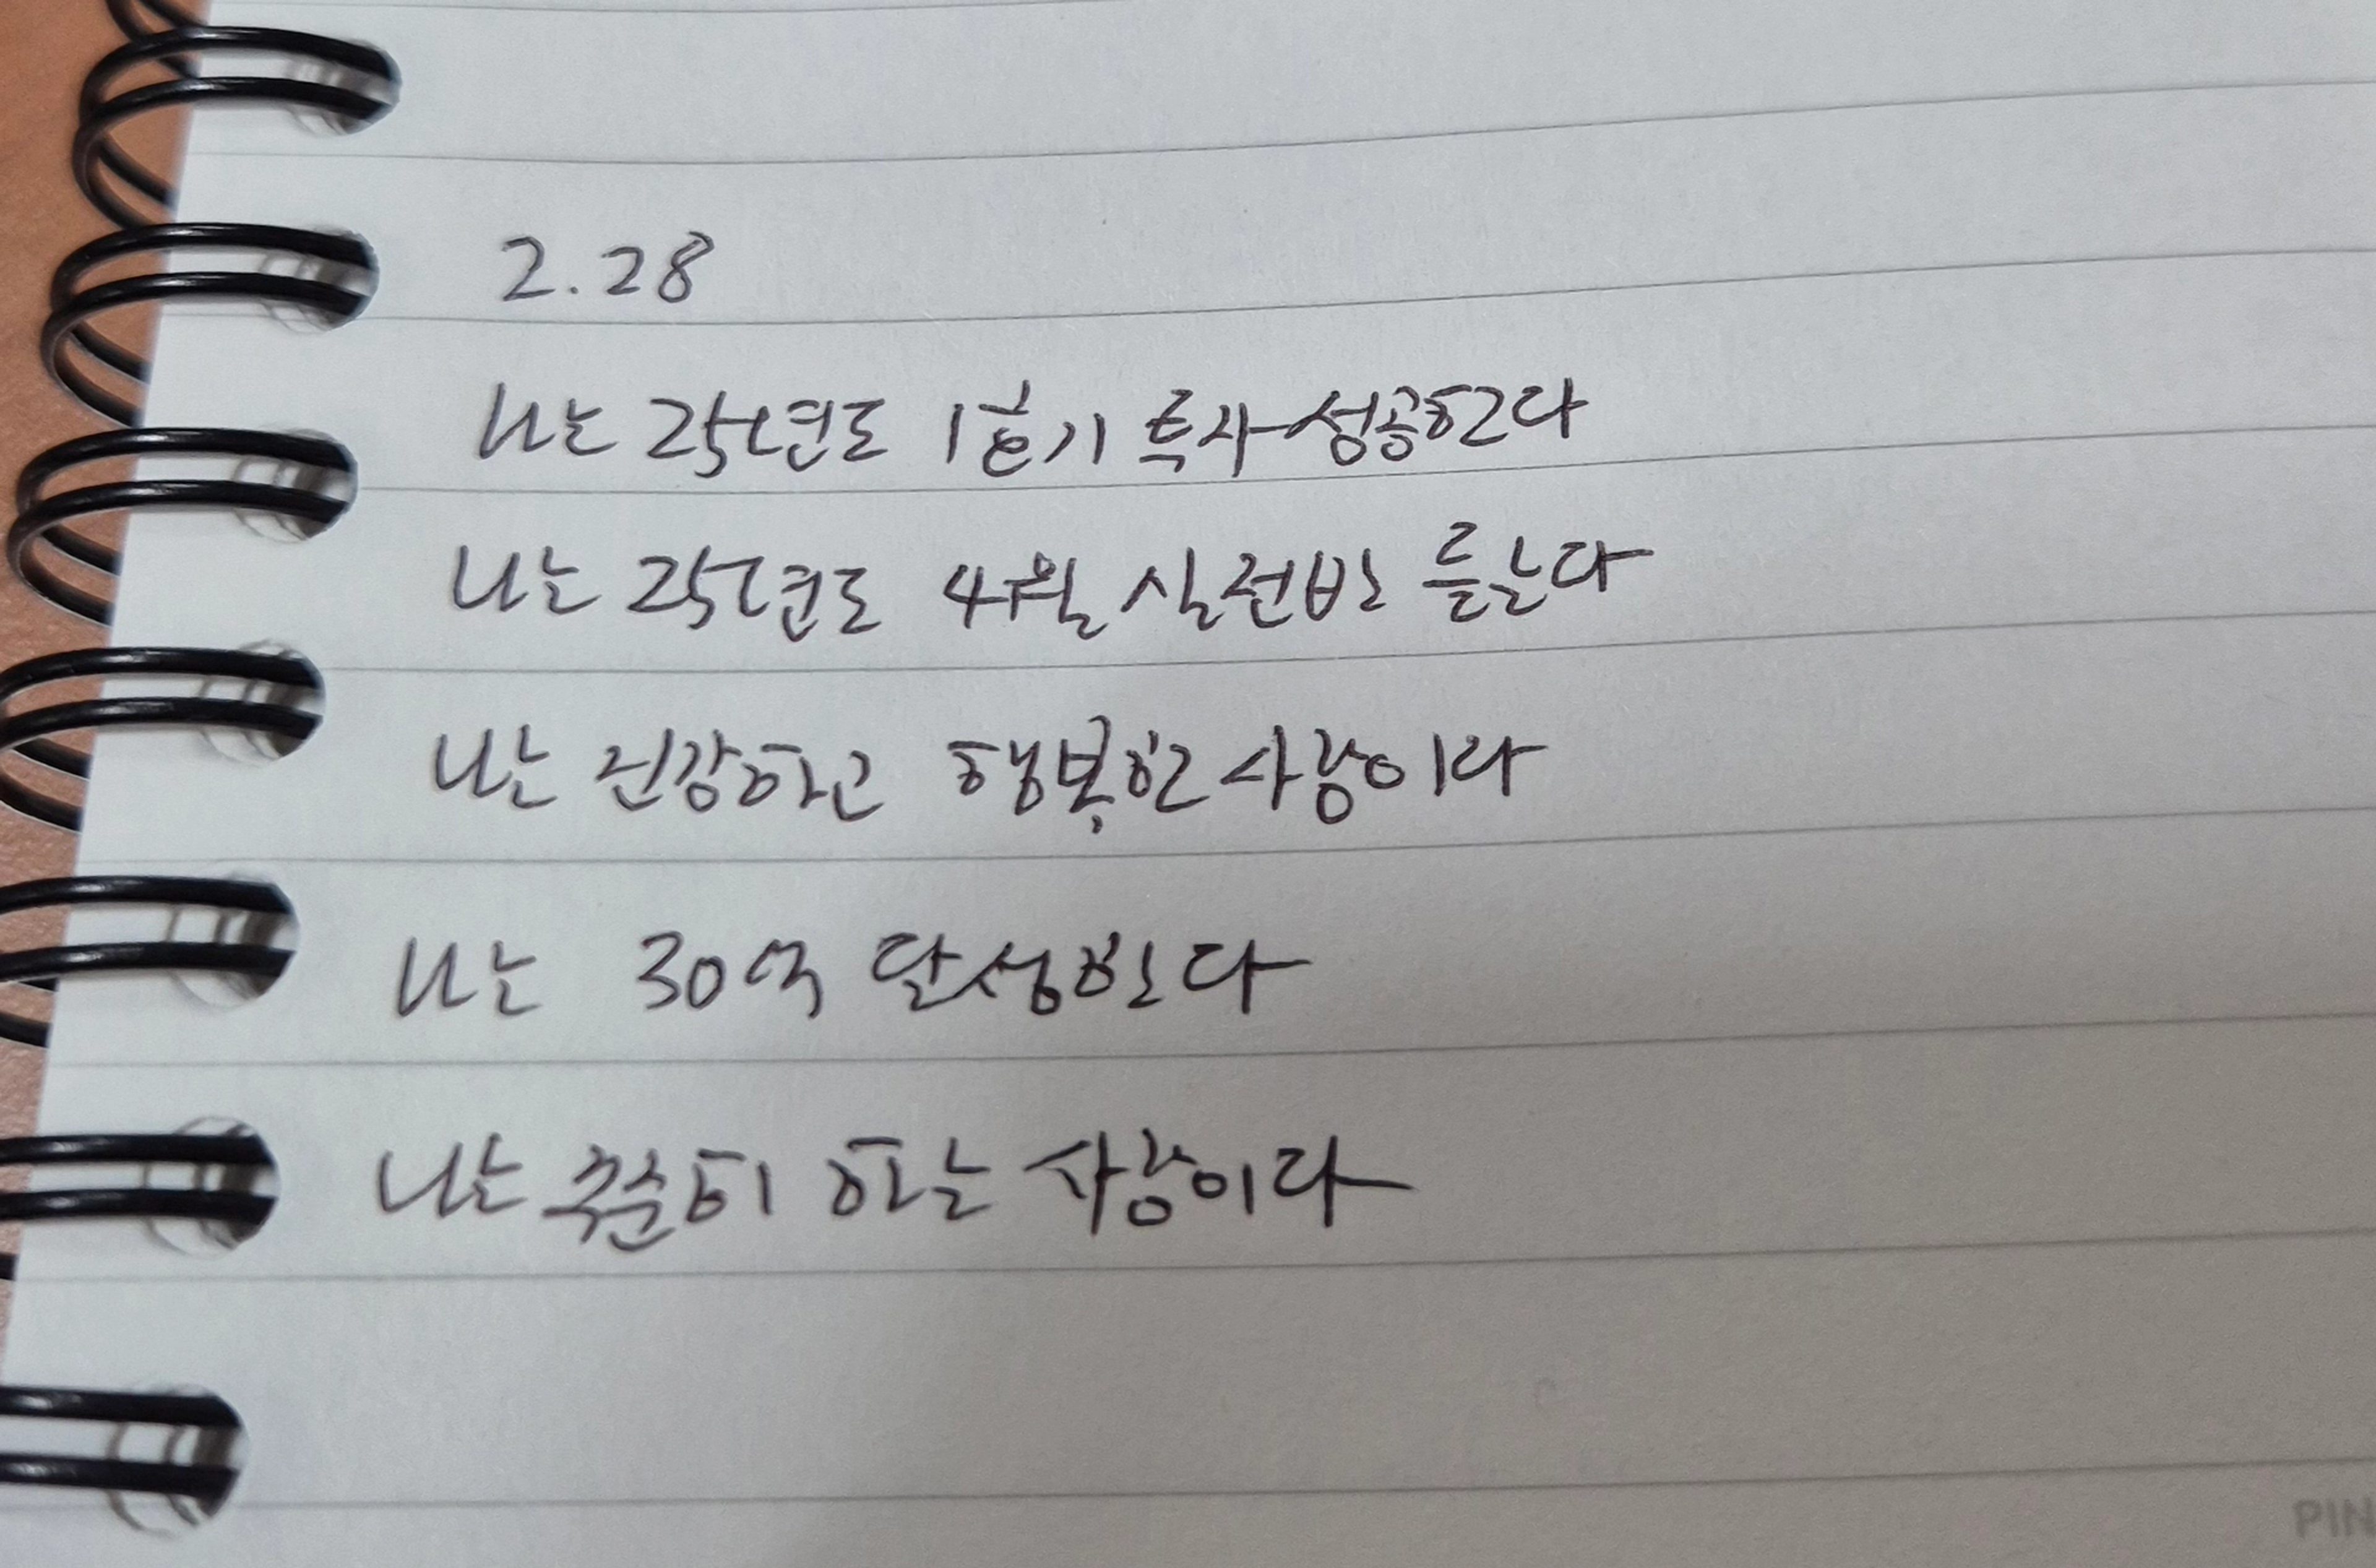 2.28
나는 25년도 1호기 투자 성공한다
나는 25년도 4월 실전반 듣는다
나는 건강하고 행복한 사람이다
나는 30억 달성한다
나는 꾸준히 하는 사람이다
PIN